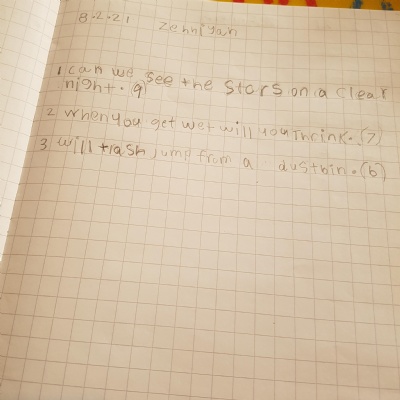 8.2.21 Zehniyah
1 can we see the stars on a clear
night. 9)
2 when you get wet will you Shrink. (7)
3 will trash jump from a dustbin. (6)